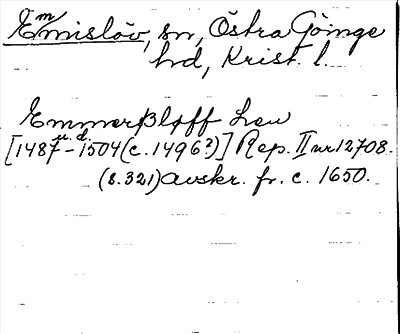 Emmislöv, sn, Östra Göinge
hd, Krist. l.
Emmerßløff Len
[1487 u.d. - 1504 (c. 1496?)] Rep. II nr 12708.
(s. 321) avskr. fr. c. 1650.